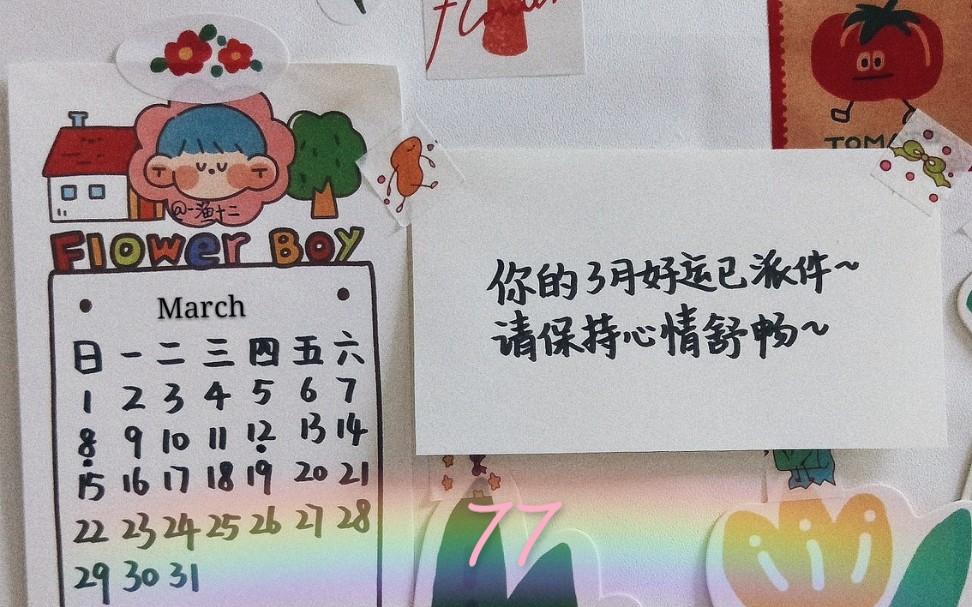 @一渔十二
Flower Boy
March
日 一 二 三 四 五 六
1 2 3 4 5 6 7
8 9 10 11 12 13 14
15 16 17 18 19 20 21
22 23 24 25 26 27 28
29 30 31
你的3月好运已派件~
请保持心情舒畅~
77